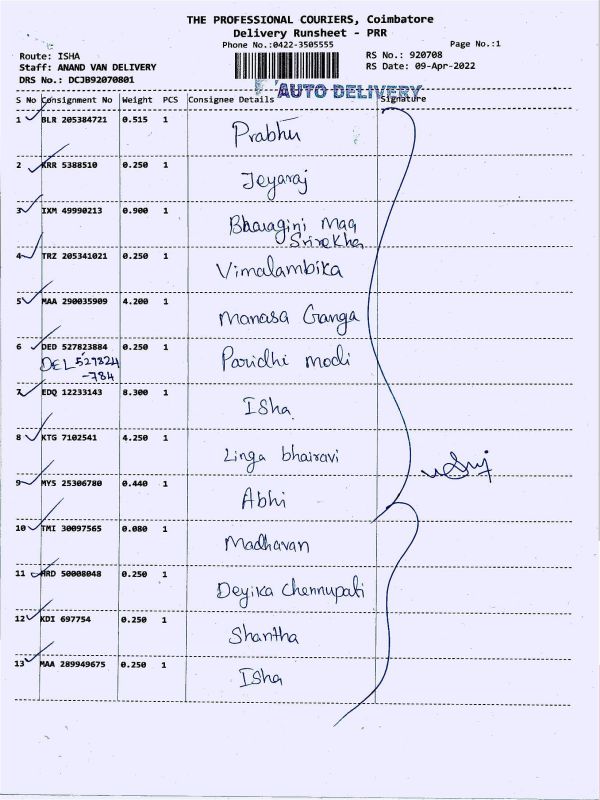 THE PROFESSIONAL COURIERS, Coimbatore
Delivery Runsheet - PRR
Phone No.:0422-3505555
Page No.:1
Route: ISHA
RS No.: 920708
Staff: ANAND VAN DELIVERY
RS Date: 09-Apr-2022
DRS No.: DCJB92070801
AUTO DELIVERY
S No Consignment No Weight PCS Consignee Details Signature
1 BLR 205384721 0.515 1 Prabhu
2 KRR 5388510 0.250 1 Jeyaraj
3 IXM 49990213 0.900 1 Bharagini Maa
Srirekha
4 TRZ 205341021 0.250 1 Vimalambika
5 MAA 290035909 4.200 1 Manasa Ganga
6 DED 527823884 0.250 1 Paridhi modi
DEL 527824
-784
7 EDQ 12233143 8.300 1 Isha
8 KTG 7102541 4.250 1 Linga bhairavi
9 MYS 25306780 0.440 1 Abhi
10 TMI 30097565 0.080 1 Madhavan
11 HRD 50008048 0.250 1 Deyika Chennupati
12 KDI 697754 0.250 1 Shantha
13 MAA 289949675 0.250 1 Isha